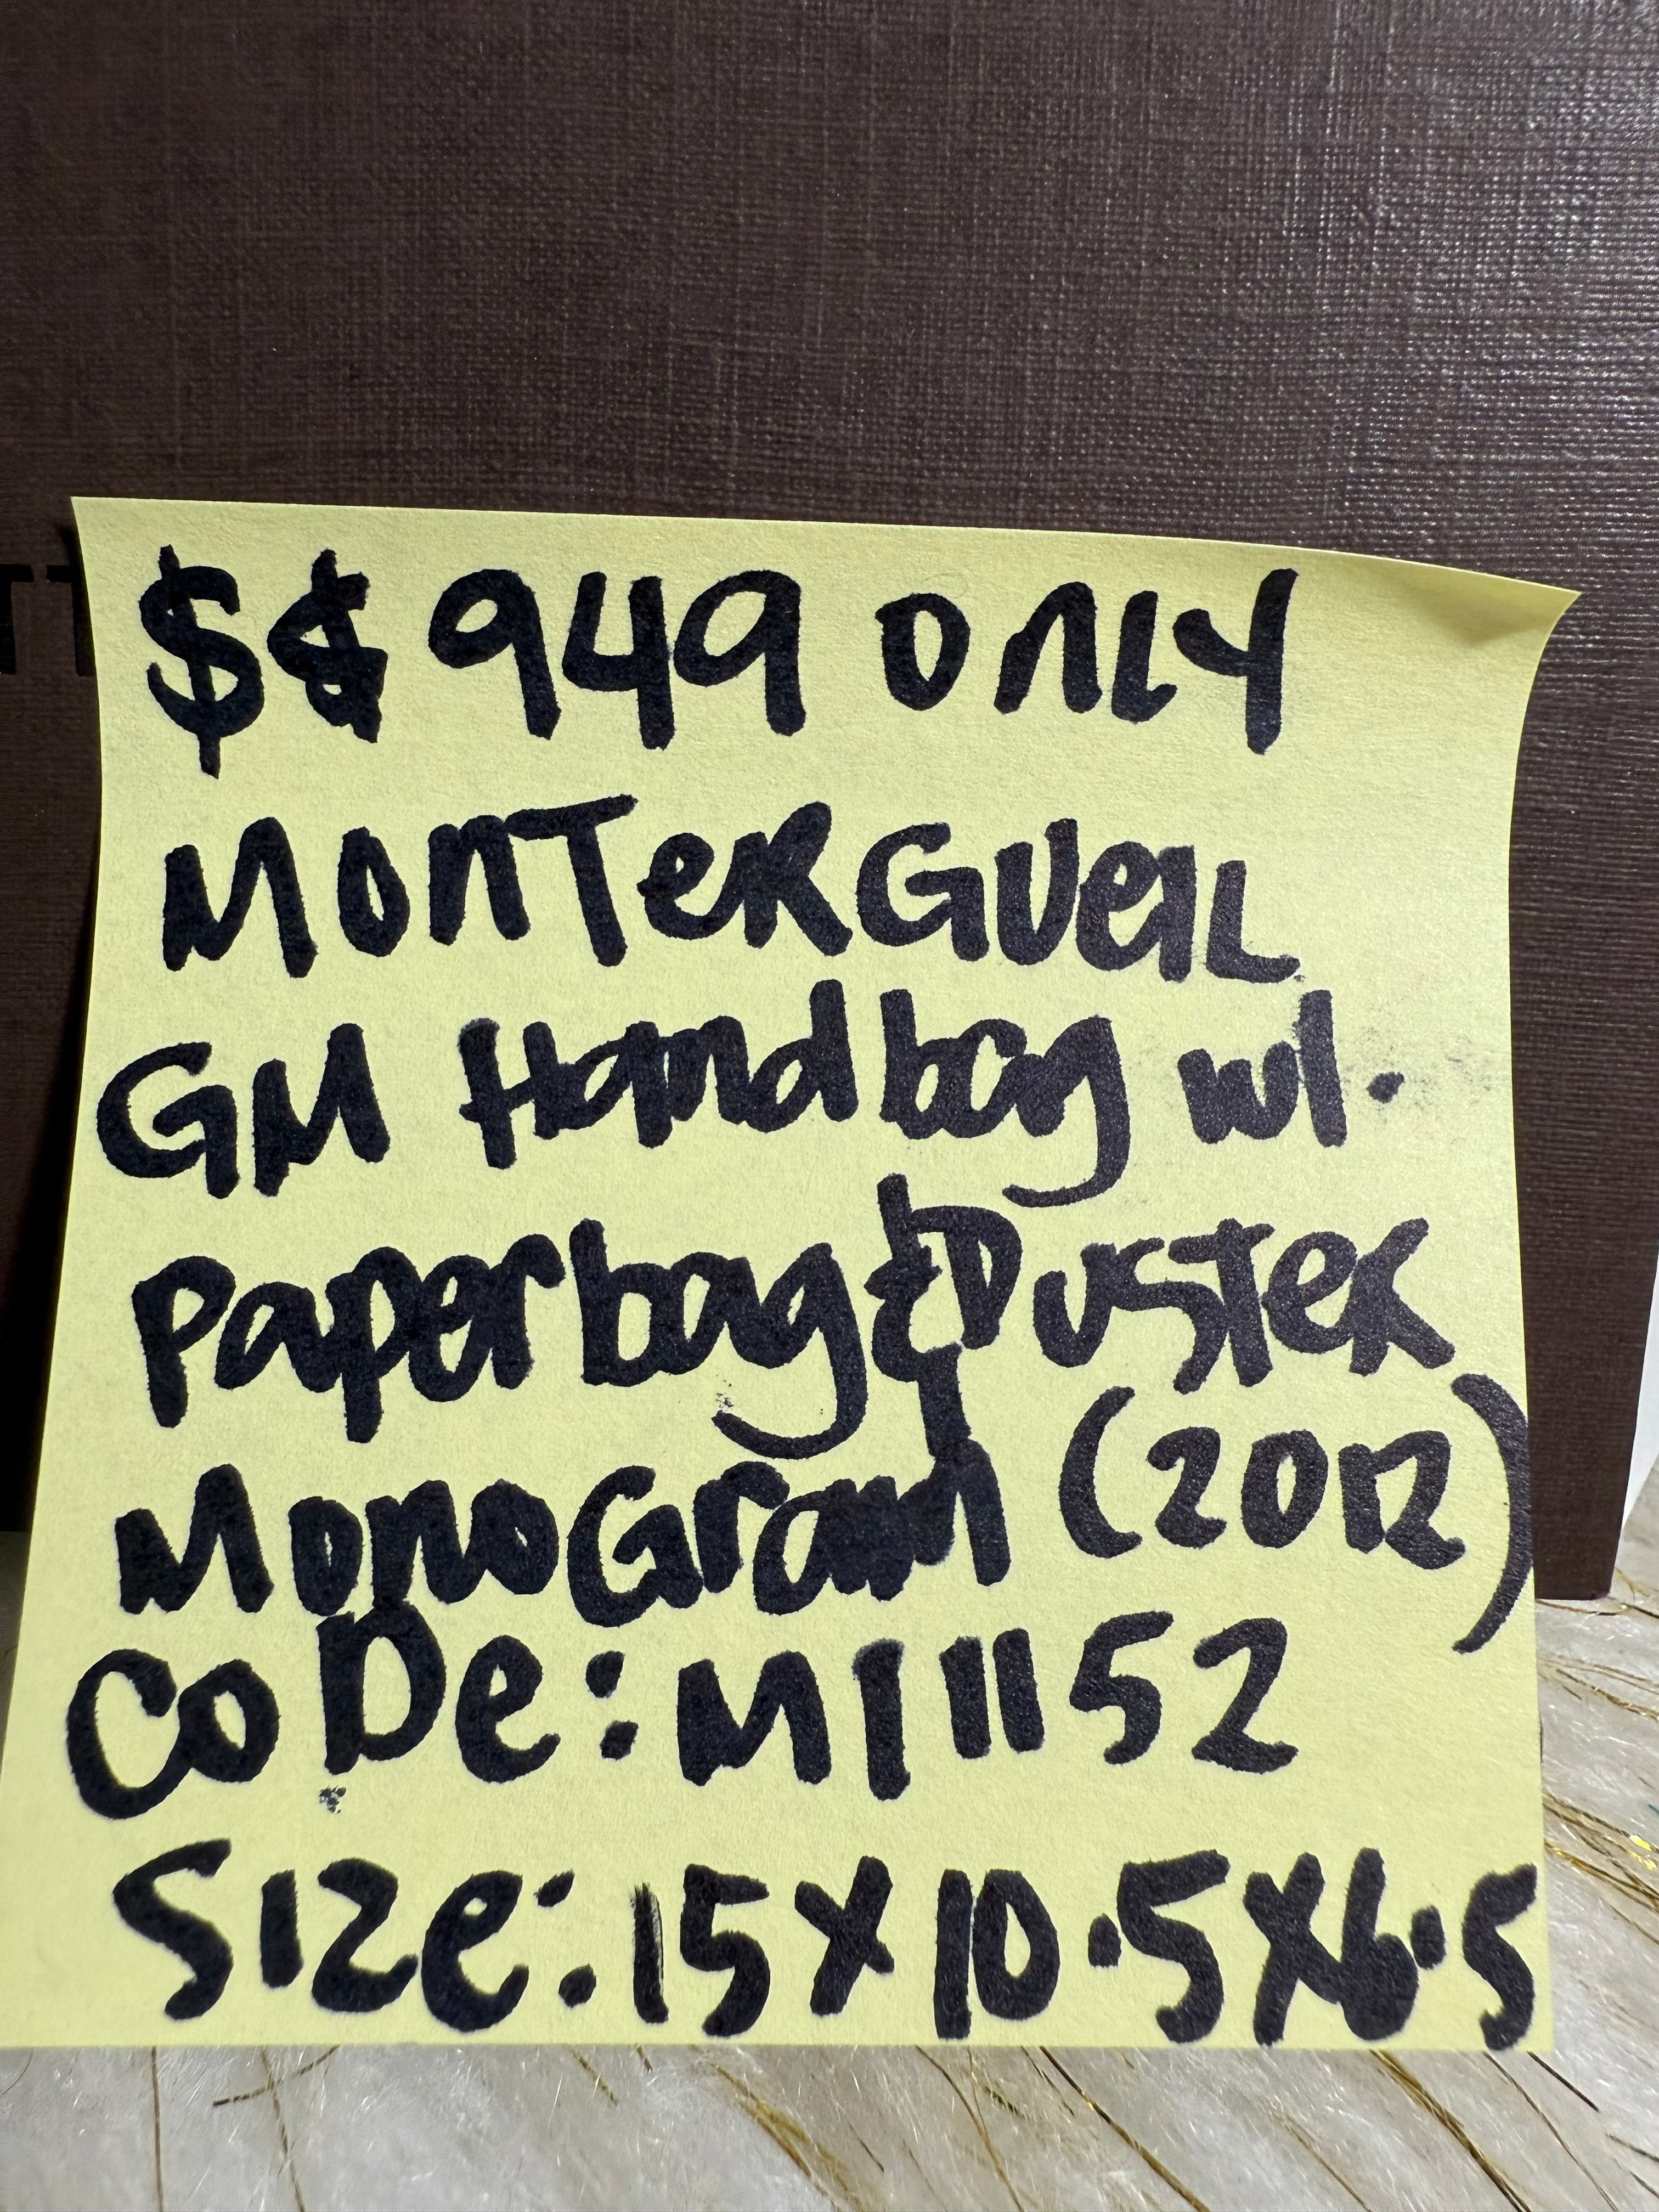 $ 949 only
MONTERGUEIL
GM Handbag w/.
Paperbag & Duster
MonoGram (2012)
CoDe: M11152
Size: 15x10.5x6.5